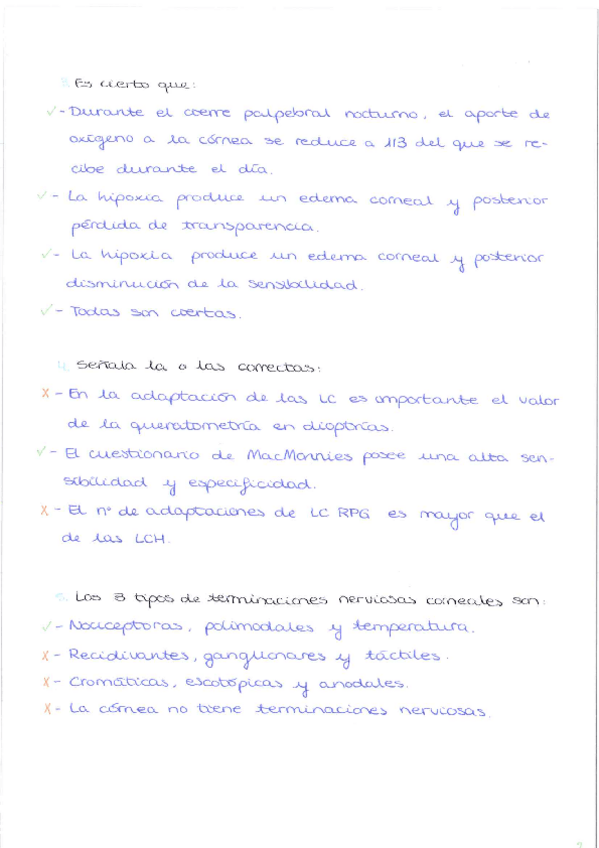 3. Es cierto que:
✓ - Durante el cierre palpebral nocturno, el aporte de
oxígeno a la córnea se reduce a 1/3 del que se re-
cibe durante el día.
✓ - La hipoxia produce un edema corneal y posterior
pérdida de transparencia.
✓ - La hipoxia produce un edema corneal y posterior
disminución de la sensibilidad.
✓ - Todas son ciertas.
4. Señala la o las correctas:
X - En la adaptación de las LC es importante el valor
de la queratometría en dioptrías.
✓ - El cuestionario de MacMonnies posee una alta sen-
sibilidad y especificidad.
X - El nº de adaptaciones de LC RPG es mayor que el
de las LCH.
5. Los 3 tipos de terminaciones nerviosas corneales son:
✓ - Nociceptoras, polimodales y temperatura.
X - Recidivantes, ganglionares y táctiles.
X - Cromáticas, escotópicas y anodales.
X - La córnea no tiene terminaciones nerviosas.
2